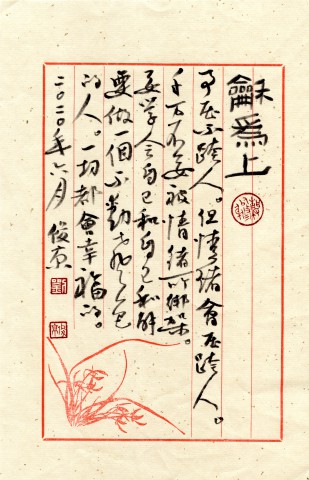 龢為上
事压不跨人。但情绪會压跨人。
千万不要被情绪所绑架。
要学会自己和自己和解
要做一個不動声色
的人。一切都會幸福的。
二〇二〇年六月 俊京